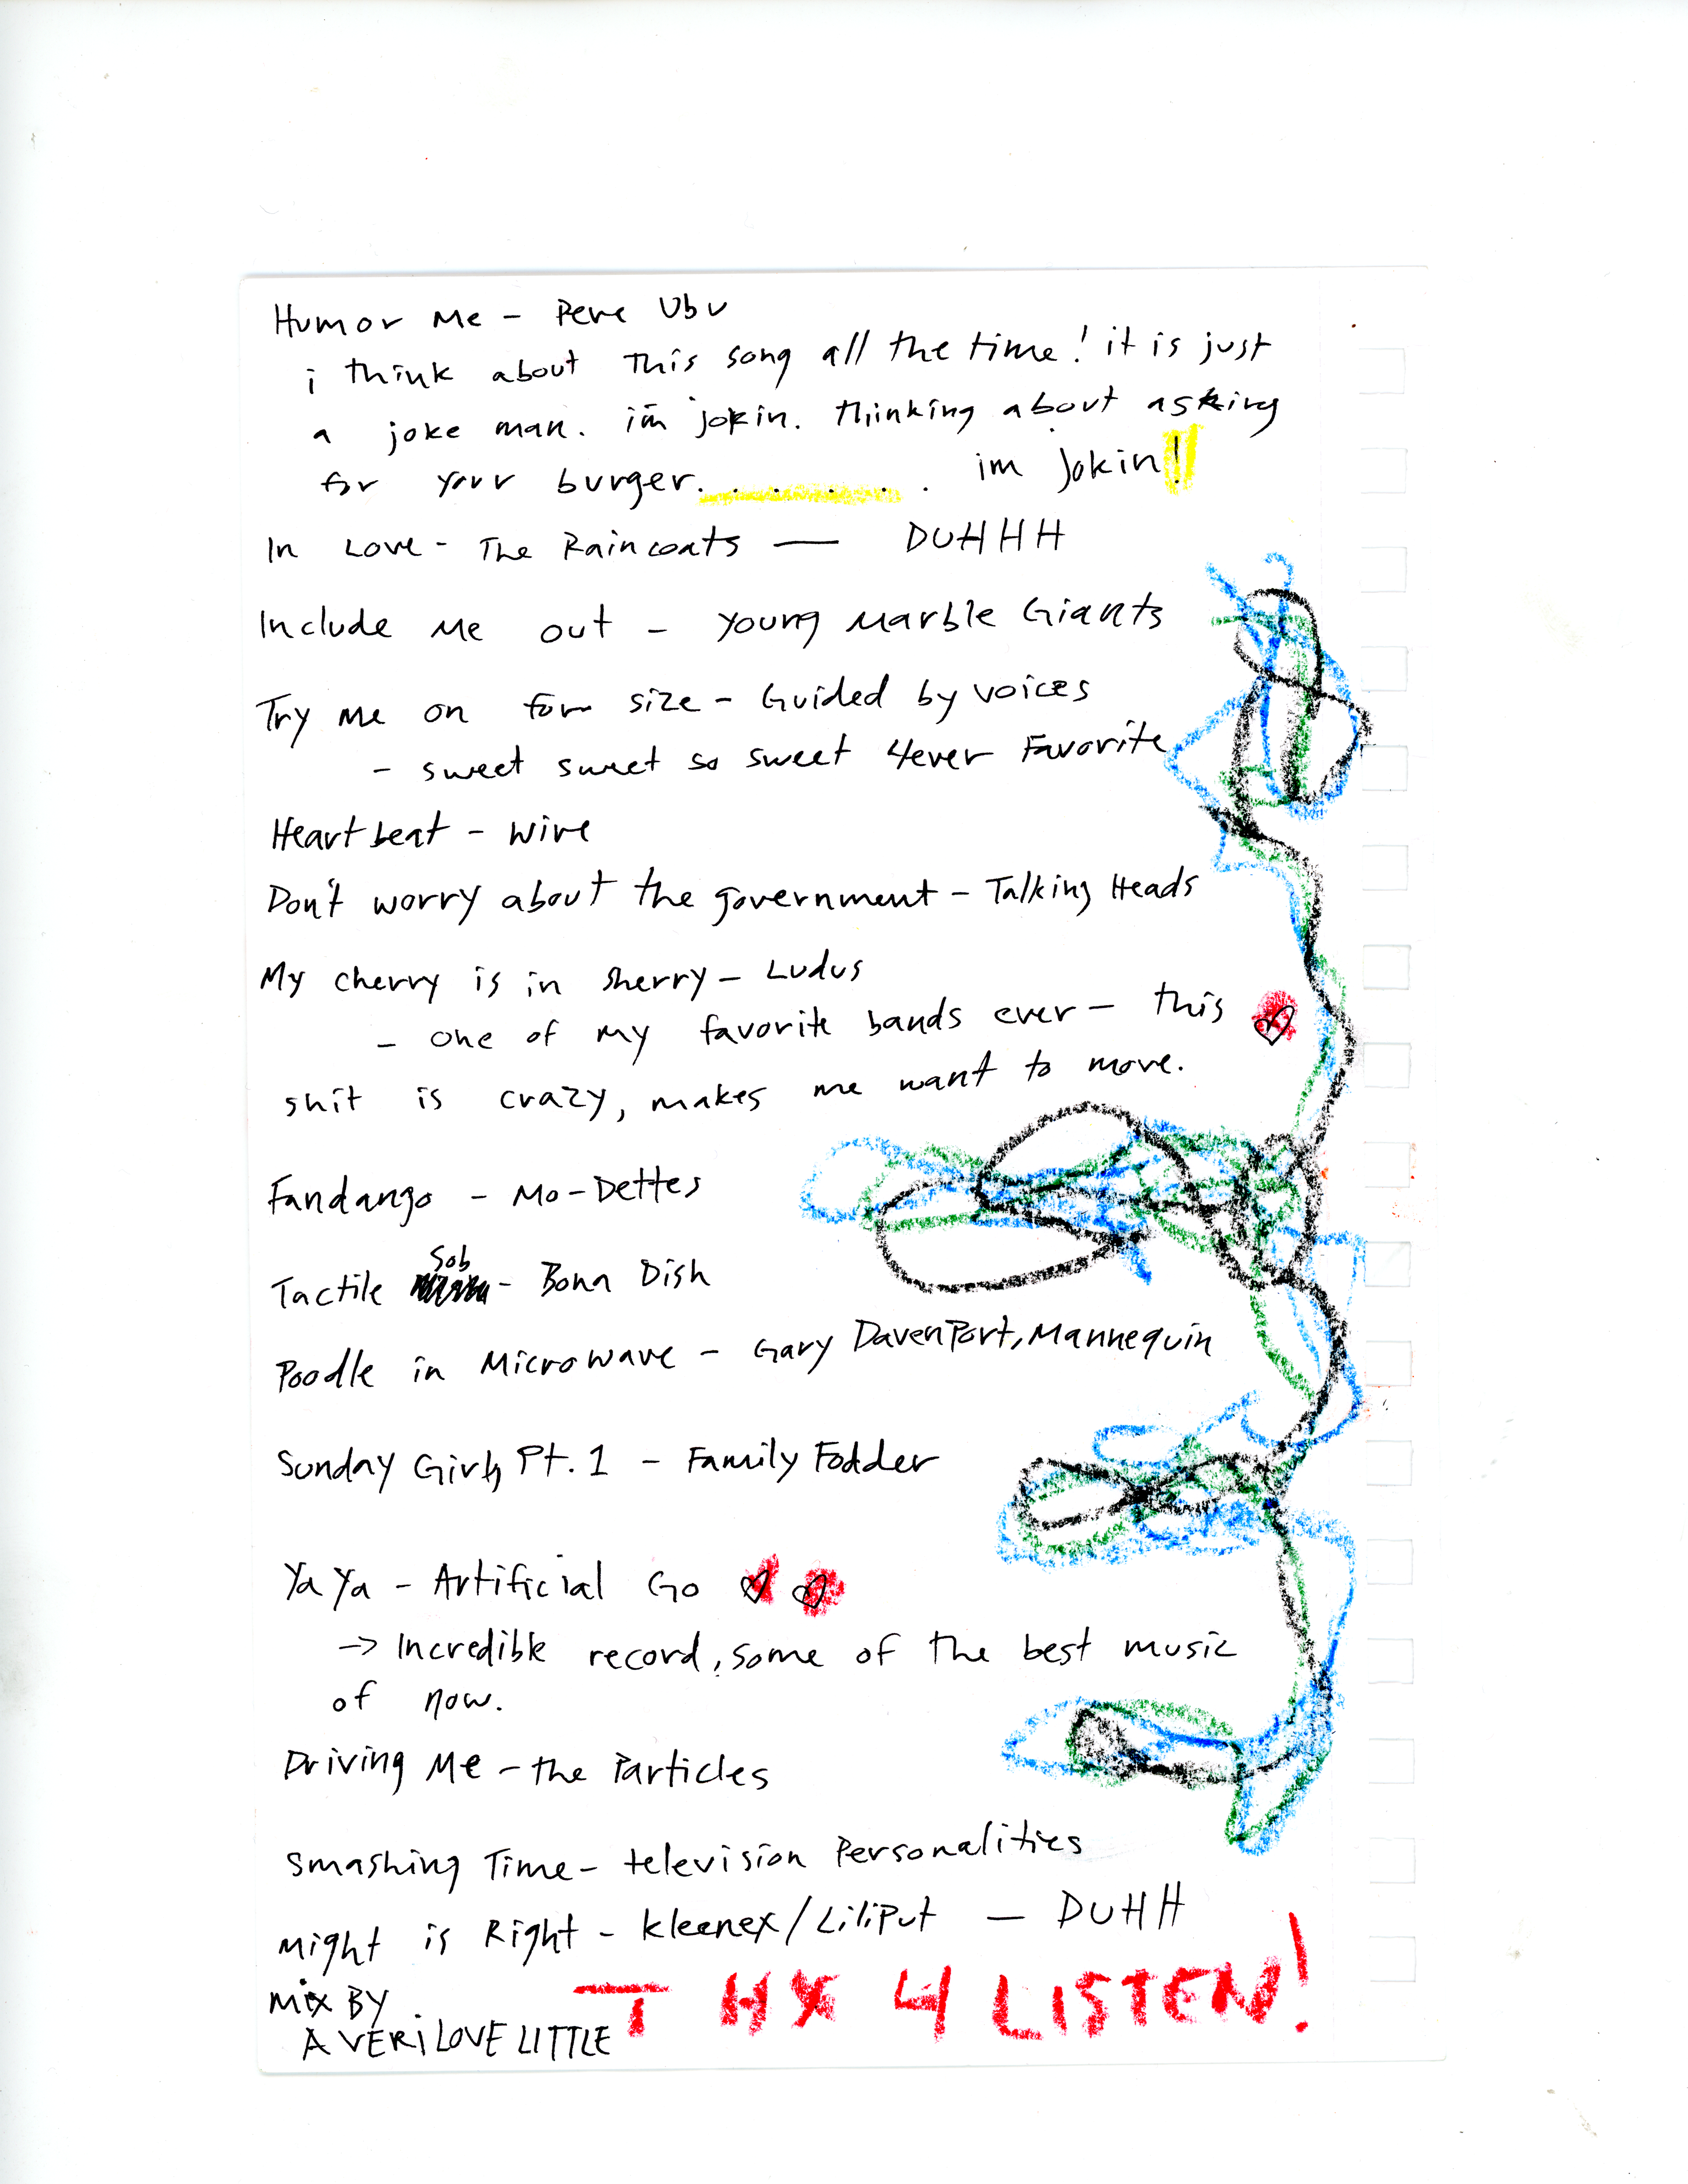 Humor Me - Pere Ubu
i think about this song all the time! it is just
a joke man. im jokin. thinking about asking
for your burger. . . . . . . . im jokin!
In Love - The Raincoats — DUHHH
Include Me out - Young Marble Giants
Try me on for size - Guided by voices
- sweet sweet so sweet 4ever Favorite
Heartbeat - Wire
Don't worry about the government - Talking Heads
My cherry is in sherry - Ludus
- one of my favorite bands ever - this
shit is crazy, makes me want to move.
Fandango - Mo-Dettes
Sob
Tactile - Bona Dish
Poodle in Microwave - Gary DavenPort, Mannequin
Sunday Girls Pt. 1 - Family Fodder
Ya Ya - Artificial Go
-> Incredible record, some of the best music
of now.
Driving Me - the Particles
Smashing Time - television Personalities
Might is Right - Kleenex/LiliPut - DUHH
Mix BY
AVERi LOVE LITTLE
THX 4 LISTEN!